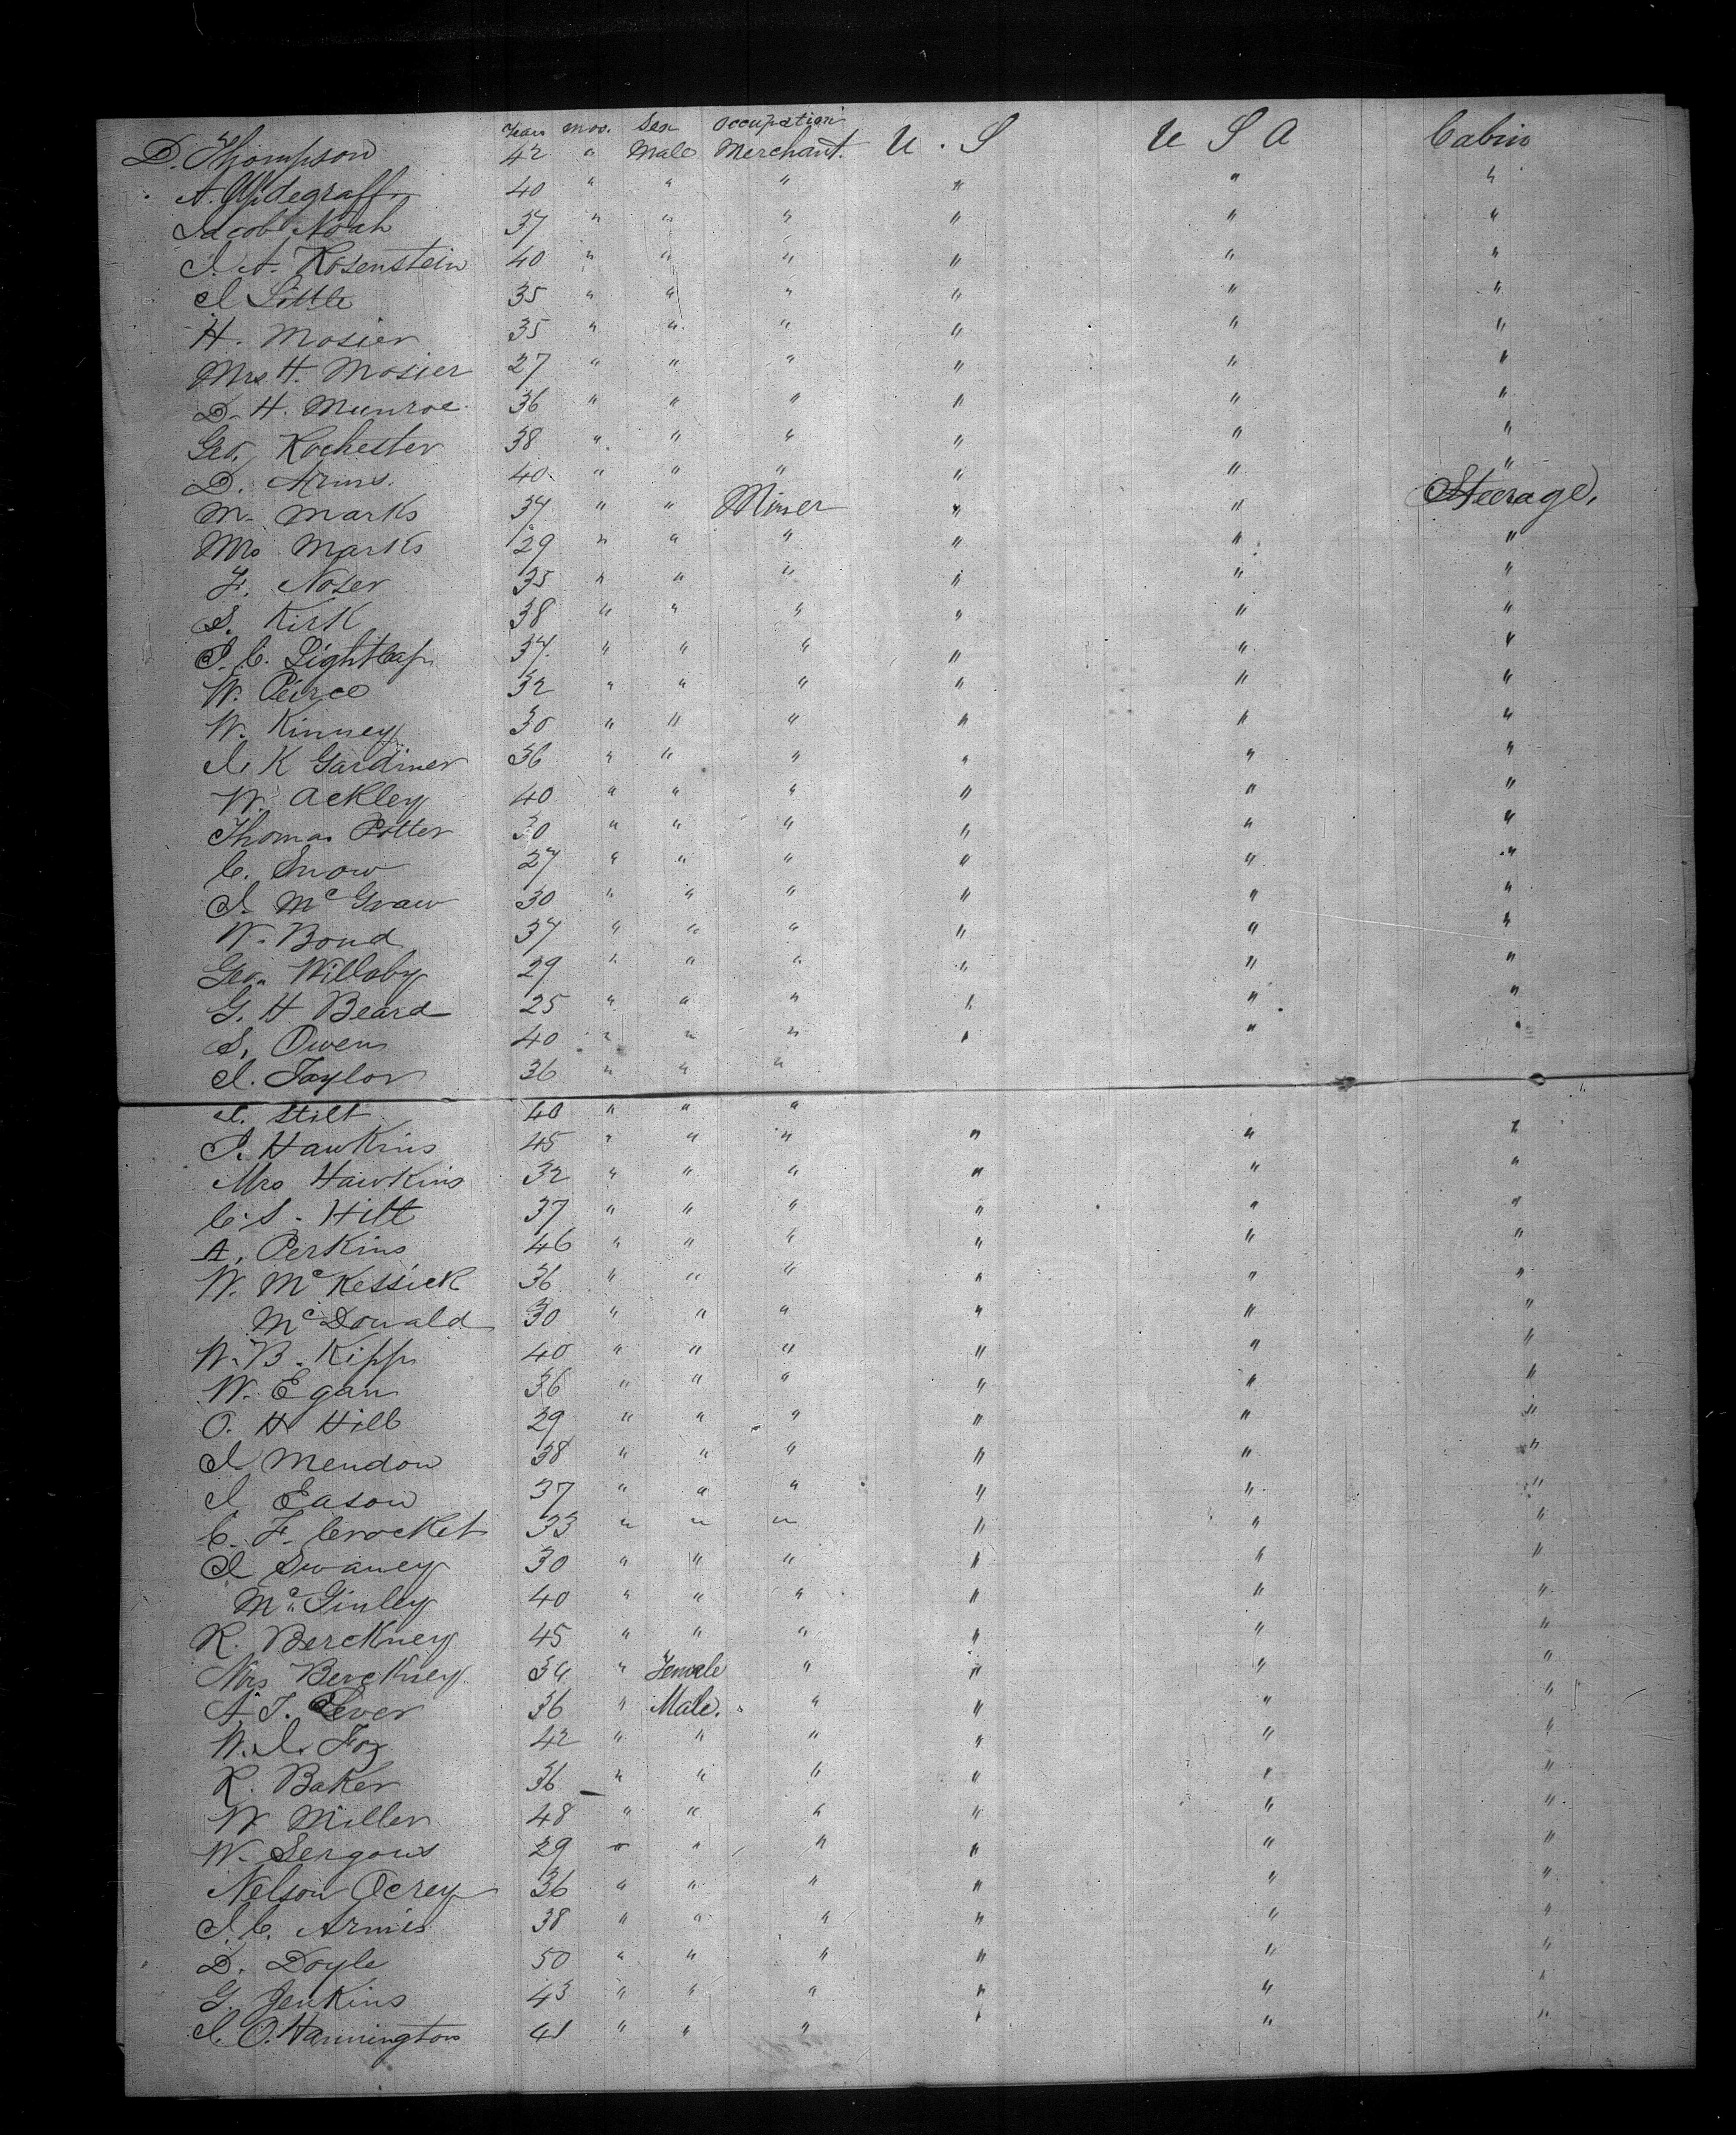 Years mos. Sex Occupation
D. Thompson 42 " Male Merchant. U. S U S A Cabin
A. Updegraff 40 " " " " " "
Jacob Noah 37 " " " " " "
J. A. Rosenstein 40 " " " " " "
J Little 35 " " " " " "
H. Mosier 35 " " " " " "
Mrs H. Mosier 27 " " " " " "
D. H. Munroe 36 " " " " " "
Geo. Rochester 38 " " " " " "
D. Arms. 40 " " " " " "
M. Marks 37 " " Miner " " Steerage,
Mrs Marks 29 " " " " " "
F. Noser 35 " " " " " "
S. Kirk 38 " " " " " "
J. C. Lightcap 37 " " " " " "
W. Peirce 32 " " " " " "
W. Kinney 30 " " " " " "
J. K Gardiner 36 " " " " " "
W. Ackley 40 " " " " " "
Thomas Potter 30 " " " " " "
C. Snow 27 " " " " " "
J. McGraw 30 " " " " " "
W. Bond 37 " " " " " "
Geo. Willaby 29 " " " " " "
G. H Beard 25 " " " " " "
S. Owen 40 " " " " " "
J. Taylor 36 " " "
J. Stilt 40 " " "
J. Hawkins 45 " " " " " "
Mrs Hawkins 32 " " " " " "
C. S. Hitt 37 " " " " " "
A. Perkins 46 " " " " " "
W. McKessick 36 " " " " " "
McDonald 30 " " " " " "
W. B. Kipp 40 " " " " " "
W. Egan 36 " " " " " "
O. H Hill 29 " " " " " "
J Mendon 38 " " " " " "
J Eason 37 " " " " " "
C. F. Crocket 33 " " " " " "
J Swaney 30 " " " " " "
McGinley 40 " " " " " "
R. Berckney 45 " " " " " "
Mrs Berckney 34 " Female " " " "
A. T. Lever 36 " Male. " " " "
W. J. Fox 42 " " " " " "
R. Baker 36 " " " " " "
W Miller 48 " " " " " "
W. Sergous 29 " " " " " "
Nelson Ocrey 36 " " " " " "
J. C. Armes 38 " " " " " "
D. Doyle 50 " " " " " "
G. Jenkins 43 " " " " " "
J. O. Hannington 41 " " " " " "